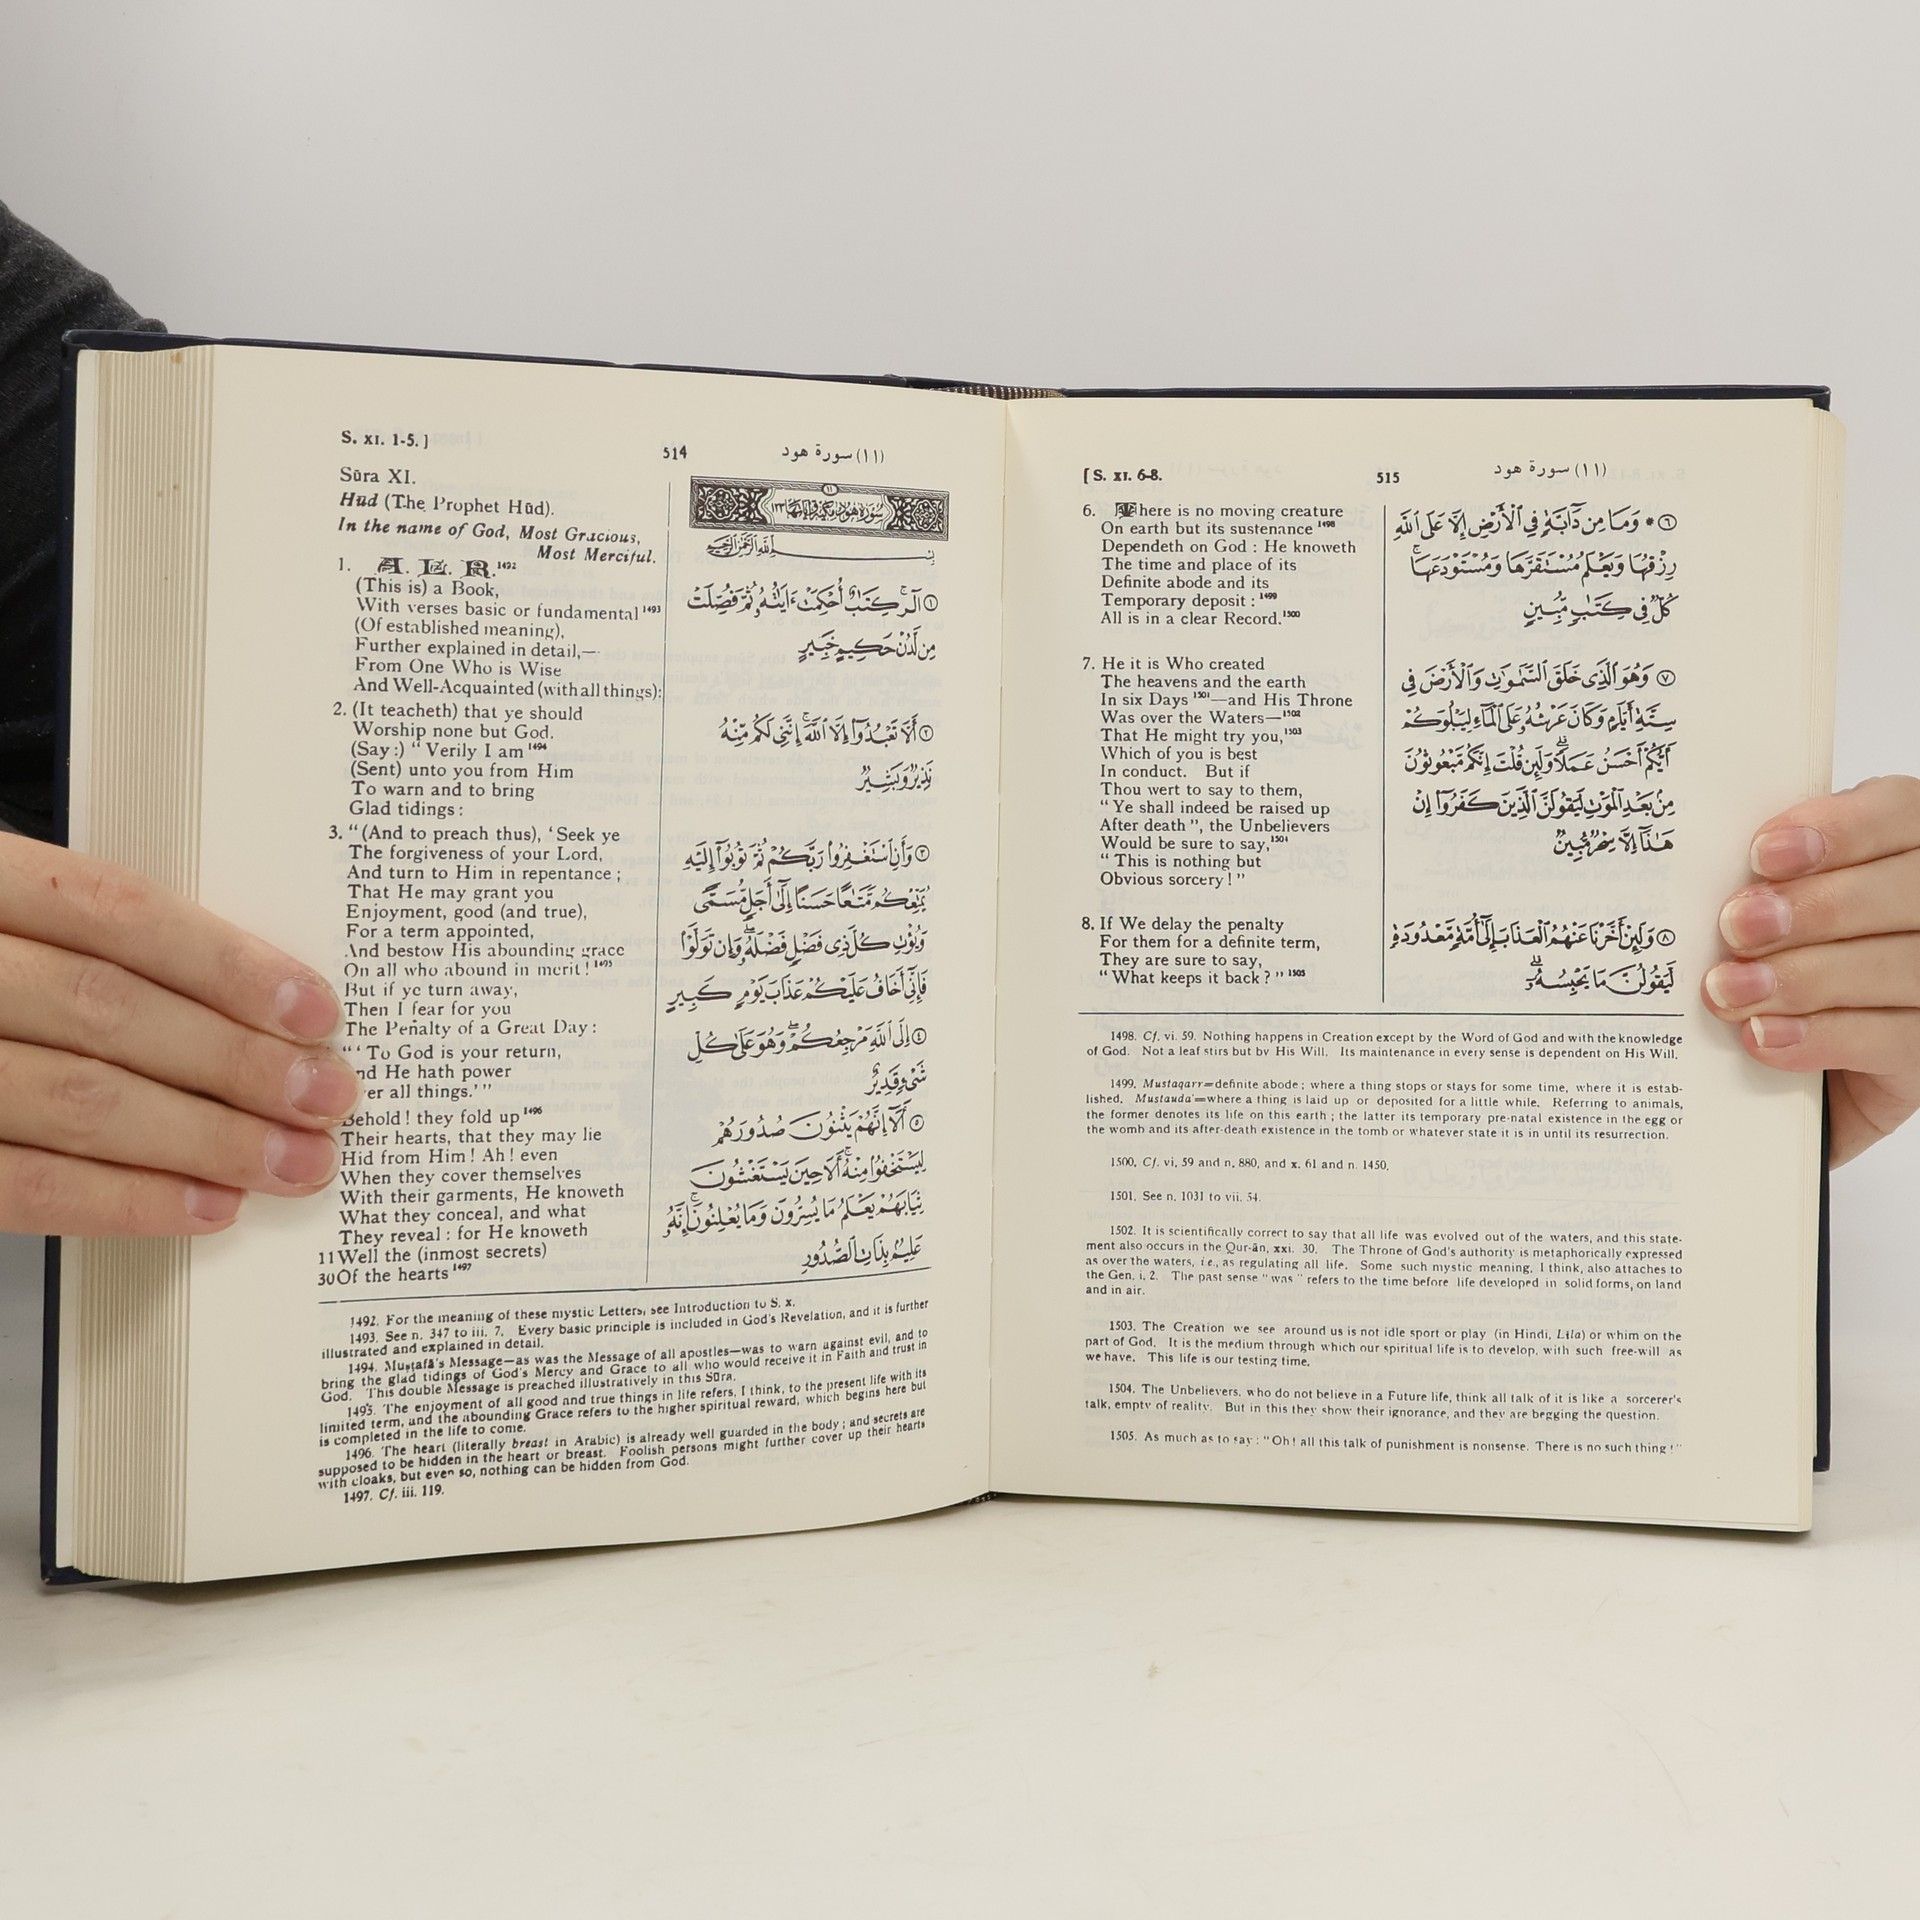 S. XI. 1-5. ]
514
(١١) سورة هود
Sūra XI.
Hūd (The Prophet Hūd).
In the name of God, Most Gracious,
Most Merciful.
1. A. L. R.1492
(This is) a Book,
With verses basic or fundamental1493
(Of established meaning),
Further explained in detail,—
From One Who is Wise
And Well-Acquainted (with all things):
2. (It teacheth) that ye should
Worship none but God.
(Say:) "Verily I am1494
(Sent) unto you from Him
To warn and to bring
Glad tidings:
3. "(And to preach thus), 'Seek ye
The forgiveness of your Lord,
And turn to Him in repentance;
That He may grant you
Enjoyment, good (and true),
For a term appointed,
And bestow His abounding grace
On all who abound in merit!1495
But if ye turn away,
Then I fear for you
The Penalty of a Great Day:
"'To God is your return,
nd He hath power
er all things.'"
Behold! they fold up1496
Their hearts, that they may lie
Hid from Him! Ah! even
When they cover themselves
With their garments, He knoweth
What they conceal, and what
They reveal: for He knoweth
11 Well the (inmost secrets)
30 Of the hearts1497
١١
بِسْمِ ٱللَّهِ ٱلرَّحْمَٰنِ ٱلرَّحِيمِ
① الٓر ۚ كِتَٰبٌ أُحْكِمَتْ ءَايَٰتُهُۥ ثُمَّ فُصِّلَتْ
مِن لَّدُنْ حَكِيمٍ خَبِيرٍ
② أَلَّا تَعْبُدُوٓا۟ إِلَّا ٱللَّهَ ۚ إِنَّنِى لَكُم مِّنْهُ
نَذِيرٌ وَبَشِيرٌ
③ وَأَنِ ٱسْتَغْفِرُوا۟ رَبَّكُمْ ثُمَّ تُوبُوٓا۟ إِلَيْهِ
يُمَتِّعْكُم مَّتَٰعًا حَسَنًا إِلَىٰٓ أَجَلٍ مُّسَمًّى
وَيُؤْتِ كُلَّ ذِى فَضْلٍ فَضْلَهُۥ ۖ وَإِن تَوَلَّوْا۟
فَإِنِّىٓ أَخَافُ عَلَيْكُمْ عَذَابَ يَوْمٍ كَبِيرٍ
④ إِلَى ٱللَّهِ مَرْجِعُكُمْ ۖ وَهُوَ عَلَىٰ كُلِّ
شَىْءٍ قَدِيرٌ
⑤ أَلَآ إِنَّهُمْ يَثْنُونَ صُدُورَهُمْ
لِيَسْتَخْفُوا۟ مِنْهُ ۚ أَلَا حِينَ يَسْتَغْشُونَ
ثِيَابَهُمْ يَعْلَمُ مَا يُسِرُّونَ وَمَا يُعْلِنُونَ ۚ إِنَّهُۥ
عَلِيمٌۢ بِذَاتِ ٱلصُّدُورِ
1492. For the meaning of these mystic Letters, see Introduction to S. x.
1493. See n. 347 to iii. 7. Every basic principle is included in God's Revelation, and it is further
illustrated and explained in detail.
1494. Muṣṭafā's Message—as was the Message of all apostles—was to warn against evil, and to
bring the glad tidings of God's Mercy and Grace to all who would receive it in Faith and trust in
God. This double Message is preached illustratively in this Sūra.
1495. The enjoyment of all good and true things in life refers, I think, to the present life with its
limited term, and the abounding Grace refers to the higher spiritual reward, which begins here but
is completed in the life to come.
1496. The heart (literally breast in Arabic) is already well guarded in the body; and secrets are
supposed to be hidden in the heart or breast. Foolish persons might further cover up their hearts
with cloaks, but even so, nothing can be hidden from God.
1497. Cf. iii. 119.
[ S. XI. 6-8.
515
(١١) سورة هود
6. There is no moving creature
On earth but its sustenance1498
Dependeth on God: He knoweth
The time and place of its
Definite abode and its
Temporary deposit:1499
All is in a clear Record.1500
7. He it is Who created
The heavens and the earth
In six Days1501—and His Throne
Was over the Waters—1502
That He might try you,1503
Which of you is best
In conduct. But if
Thou wert to say to them,
"Ye shall indeed be raised up
After death", the Unbelievers
Would be sure to say,1504
"This is nothing but
Obvious sorcery!"
8. If We delay the penalty
For them for a definite term,
They are sure to say,
"What keeps it back?"1505
⑥ * وَمَا مِن دَآبَّةٍ فِى ٱلْأَرْضِ إِلَّا عَلَى ٱللَّهِ
رِزْقُهَا وَيَعْلَمُ مُسْتَقَرَّهَا وَمُسْتَوْدَعَهَا ۚ
كُلٌّ فِى كِتَٰبٍ مُّبِينٍ
⑦ وَهُوَ ٱلَّذِى خَلَقَ ٱلسَّمَٰوَٰتِ وَٱلْأَرْضَ فِى
سِتَّةِ أَيَّامٍ وَكَانَ عَرْشُهُۥ عَلَى ٱلْمَآءِ لِيَبْلُوَكُمْ
أَيُّكُمْ أَحْسَنُ عَمَلًا ۗ وَلَئِن قُلْتَ إِنَّكُم مَّبْعُوثُونَ
مِنۢ بَعْدِ ٱلْمَوْتِ لَيَقُولَنَّ ٱلَّذِينَ كَفَرُوٓا۟ إِنْ
هَٰذَآ إِلَّا سِحْرٌ مُّبِينٌ
⑧ وَلَئِنْ أَخَّرْنَا عَنْهُمُ ٱلْعَذَابَ إِلَىٰٓ أُمَّةٍ مَّعْدُودَةٍ
لَّيَقُولُنَّ مَا يَحْبِسُهُۥٓ ۗ
1498. Cf. vi. 59. Nothing happens in Creation except by the Word of God and with the knowledge
of God. Not a leaf stirs but by His Will. Its maintenance in every sense is dependent on His Will.
1499. Mustaqarr=definite abode; where a thing stops or stays for some time, where it is estab-
lished. Mustauda'=where a thing is laid up or deposited for a little while. Referring to animals,
the former denotes its life on this earth; the latter its temporary pre-natal existence in the egg or
the womb and its after-death existence in the tomb or whatever state it is in until its resurrection.
1500. Cf. vi. 59 and n. 880, and x. 61 and n. 1450.
1501. See n. 1031 to vii. 54.
1502. It is scientifically correct to say that all life was evolved out of the waters, and this state-
ment also occurs in the Qur-ān, xxi. 30. The Throne of God's authority is metaphorically expressed
as over the waters, i.e., as regulating all life. Some such mystic meaning, I think, also attaches to
the Gen. i. 2. The past sense "was" refers to the time before life developed in solid forms, on land
and in air.
1503. The Creation we see around us is not idle sport or play (in Hindi, Lila) or whim on the
part of God. It is the medium through which our spiritual life is to develop, with such free-will as
we have. This life is our testing time.
1504. The Unbelievers, who do not believe in a Future life, think all talk of it is like a sorcerer's
talk, empty of reality. But in this they show their ignorance, and they are begging the question.
1505. As much as to say: "Oh! all this talk of punishment is nonsense. There is no such thing!"